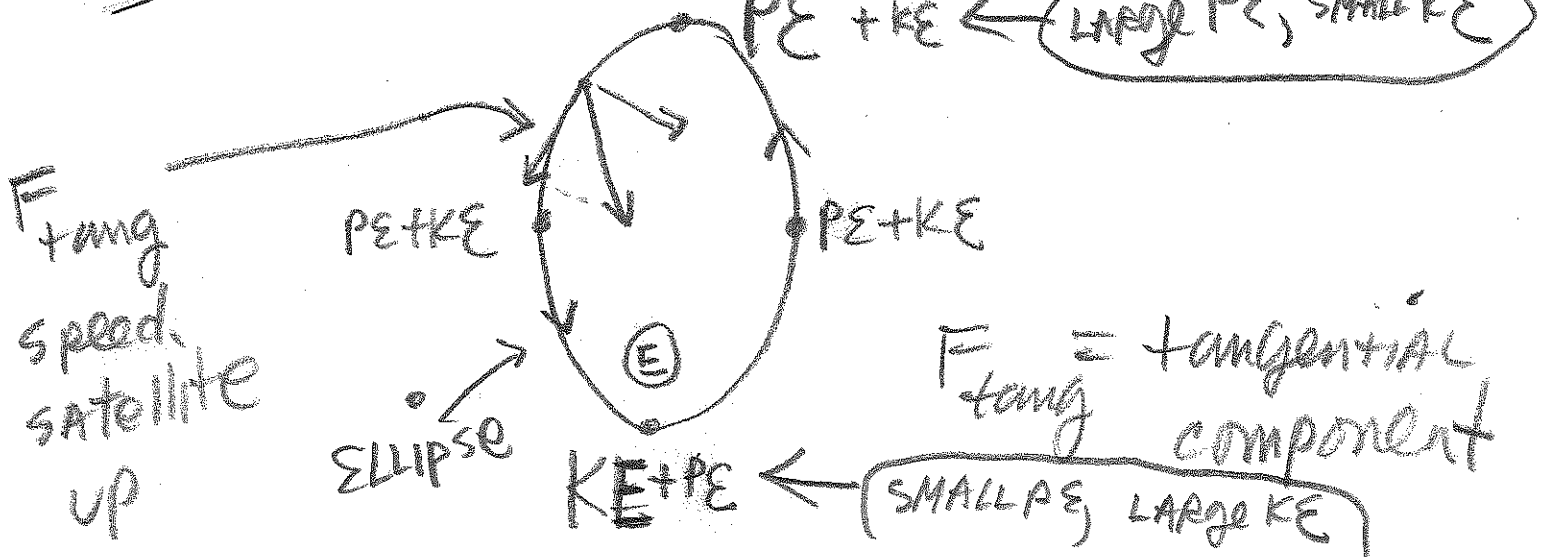 PE + KE
LARGE PE, SMALL KE
F tang
speed
satellite
up
PE+KE
PE+KE
E
ELLIPSE
F tang = tangential
component
KE+PE
SMALL PE, LARGE KE